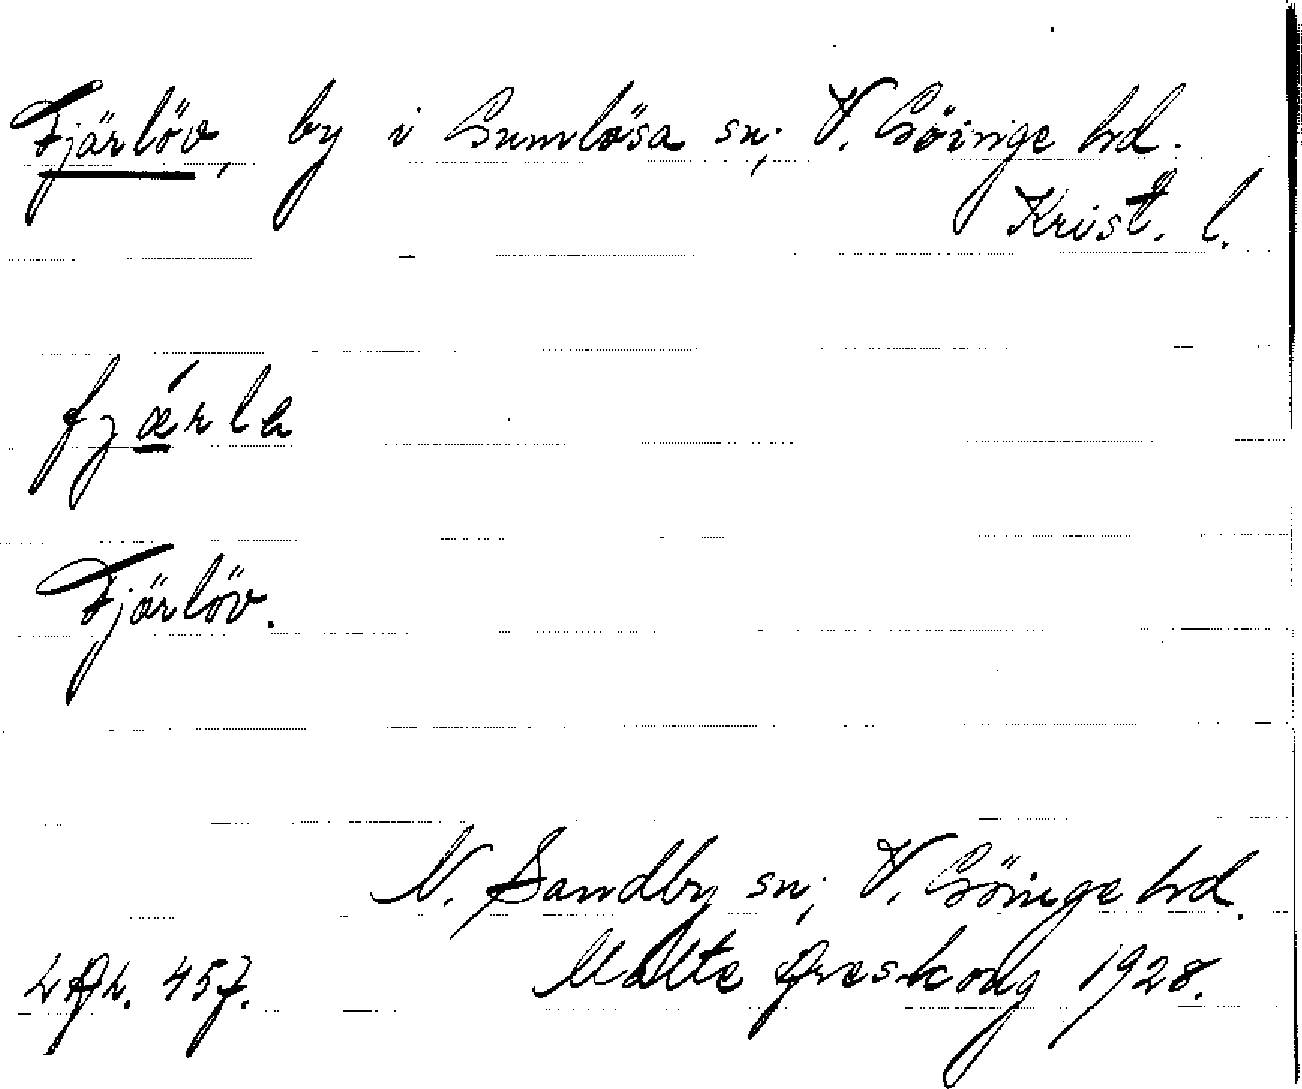 Fjärlöv, by i Gumlösa sn; V. Göinge hd.
Krist. l.
fjǽrla
Fjärlöv.
N. Sandby sn; V. Göinge hd.
Malte Areskoug 1928.
457.